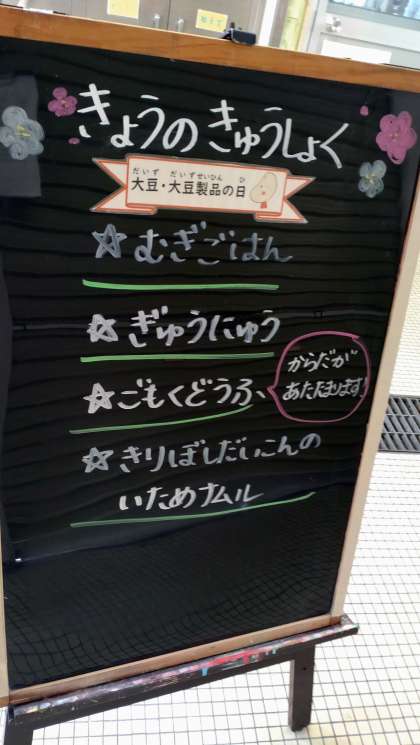 きょうのきゅうしょく
だいず だいずせいひん ひ
大豆・大豆製品の日
☆むぎごはん
☆ぎゅうにゅう
☆ごもくどうふ
からだが
あたたまります!
☆きりぼしだいこんの
いためナムル